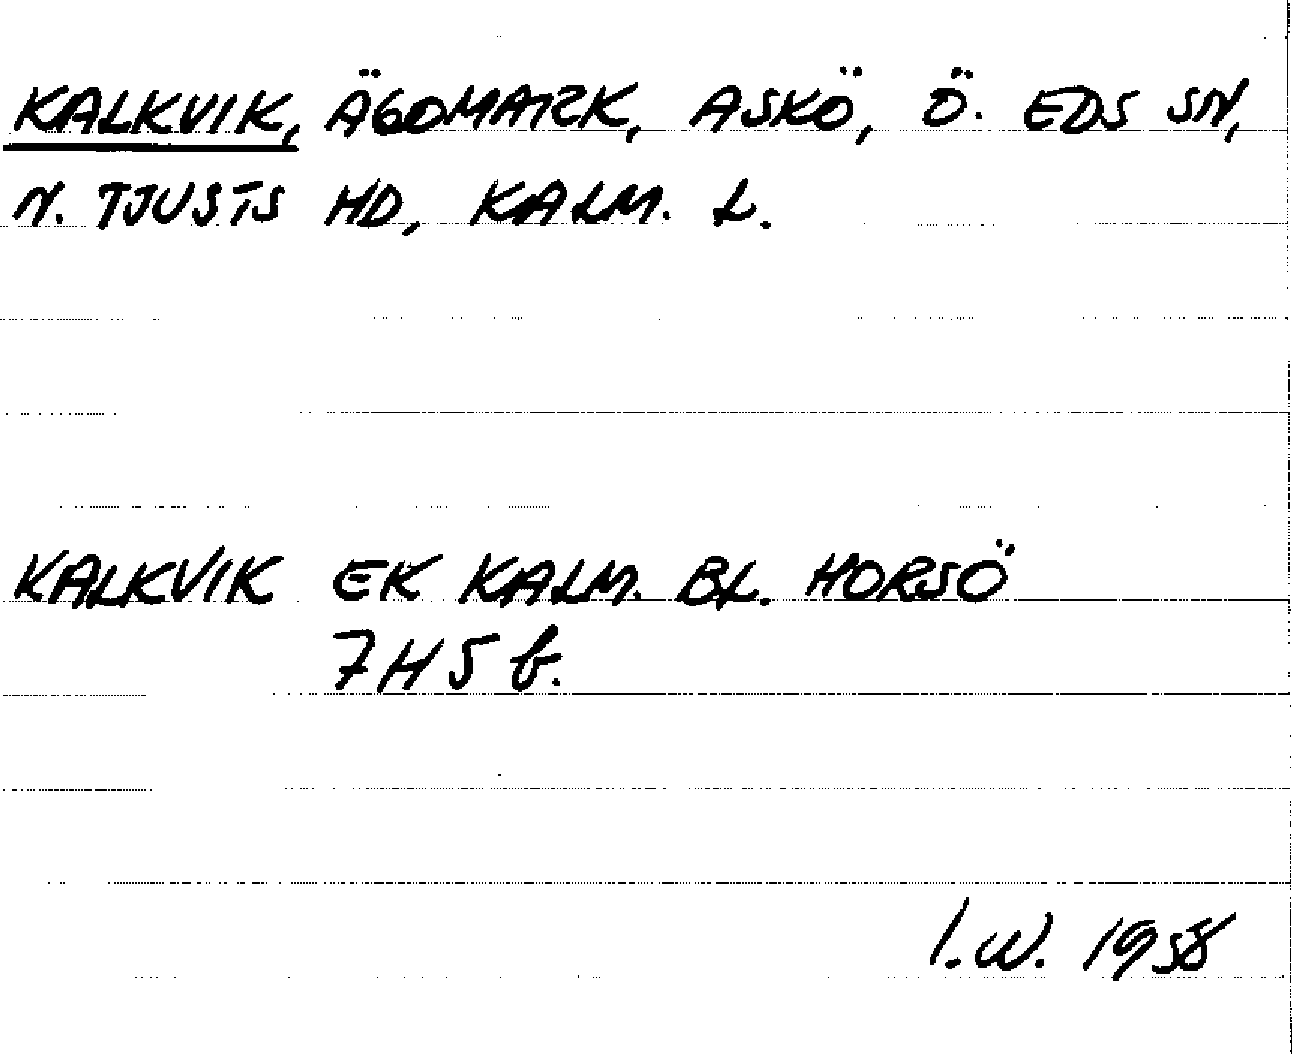 KALKVIK, ÄGOMARK, ASKÖ, Ö. EDS SN,
N. TJUSTS HD, KALM. L.
KALKVIK EK KALM. BL. HORSÖ
7H5b.
I.W. 1958